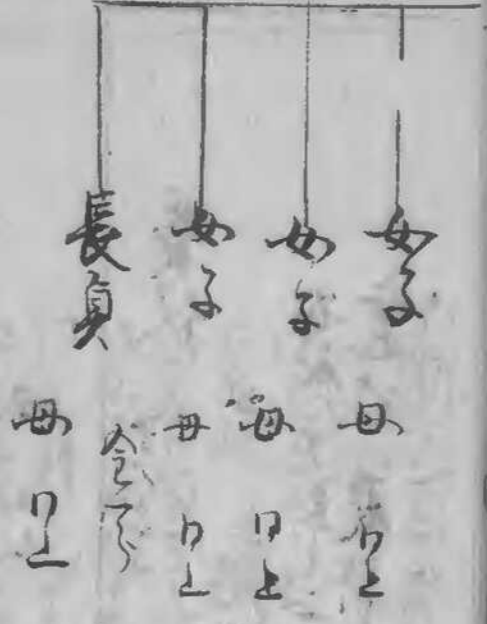 女子
母 同上
女子
母 同上
女子
母 同上
長貞
母 同上